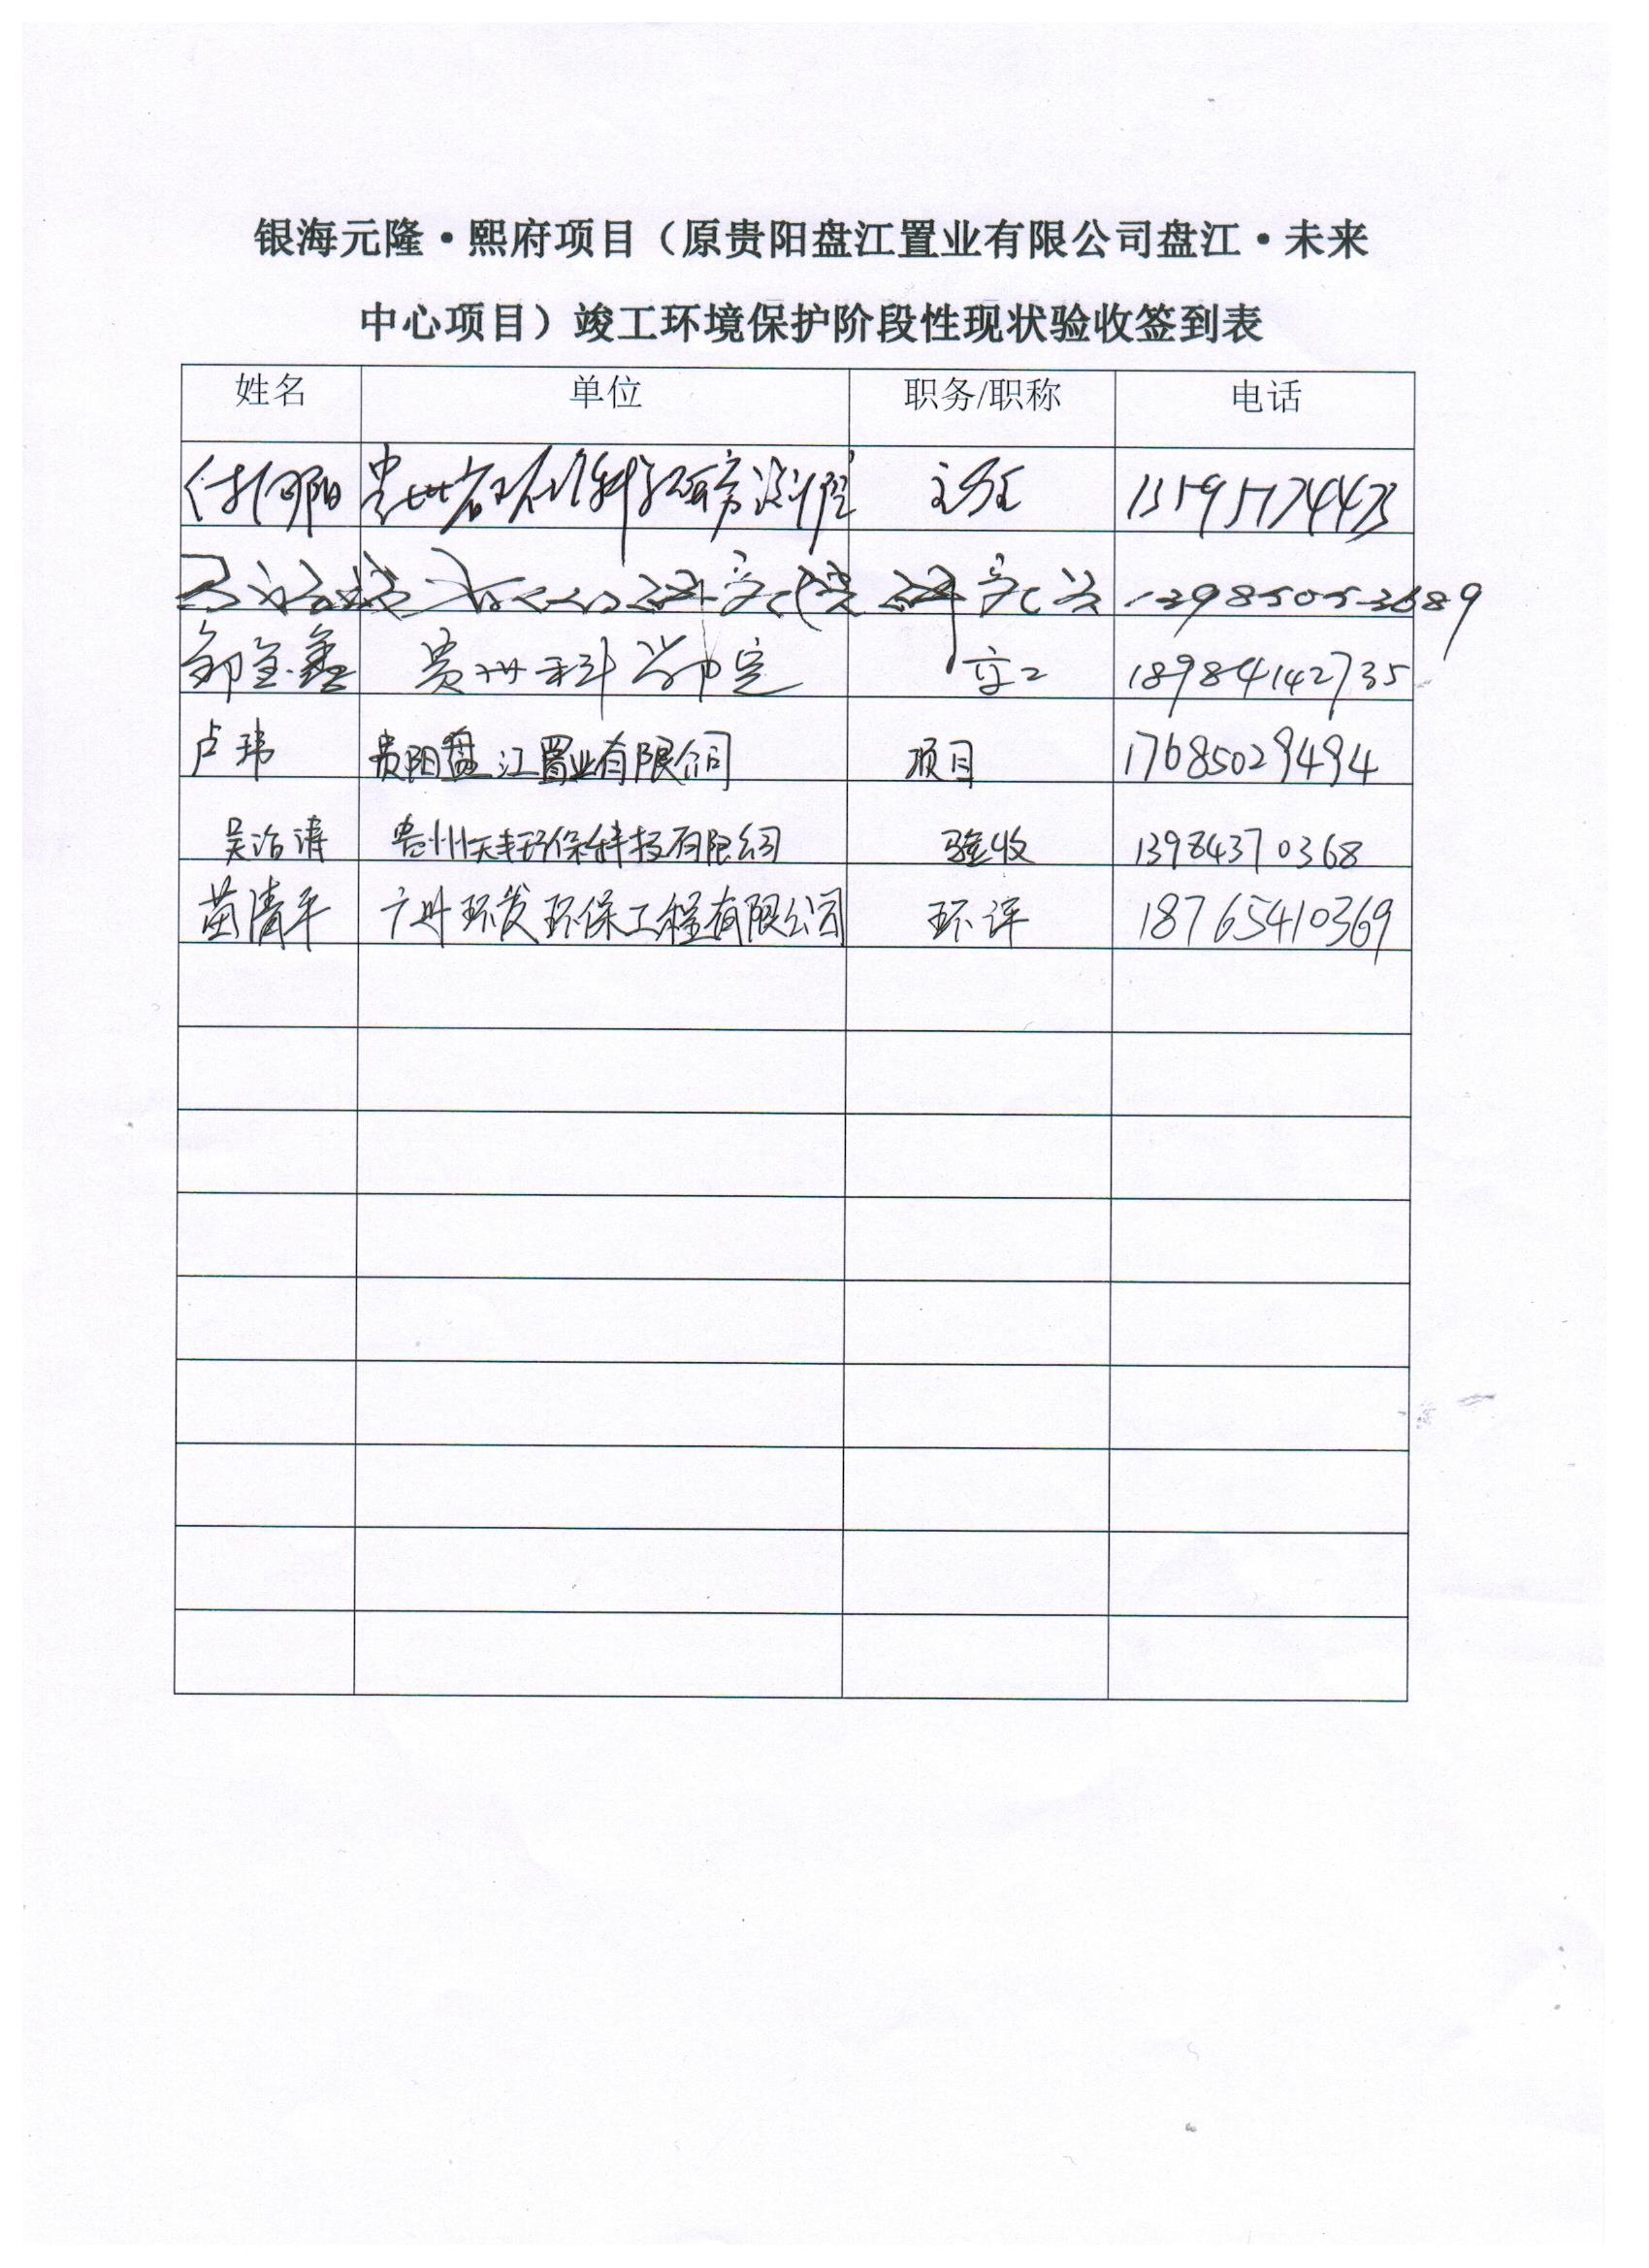 银海元隆·熙府项目（原贵阳盘江置业有限公司盘江·未来
中心项目）竣工环境保护阶段性现状验收签到表
姓名 单位 职务/职称 电话
付向阳 贵州省环境科学研究设计院 主任 13595174473
研究院 研究员 13985053689
邹金鑫 贵州科学院 高工 18984142735
卢玮 贵阳盘江置业有限公司 项目 17685029494
吴治涛 贵州天丰环保科技有限公司 验收 13984370368
苗清平 广州环发环保工程有限公司 环评 18765410369